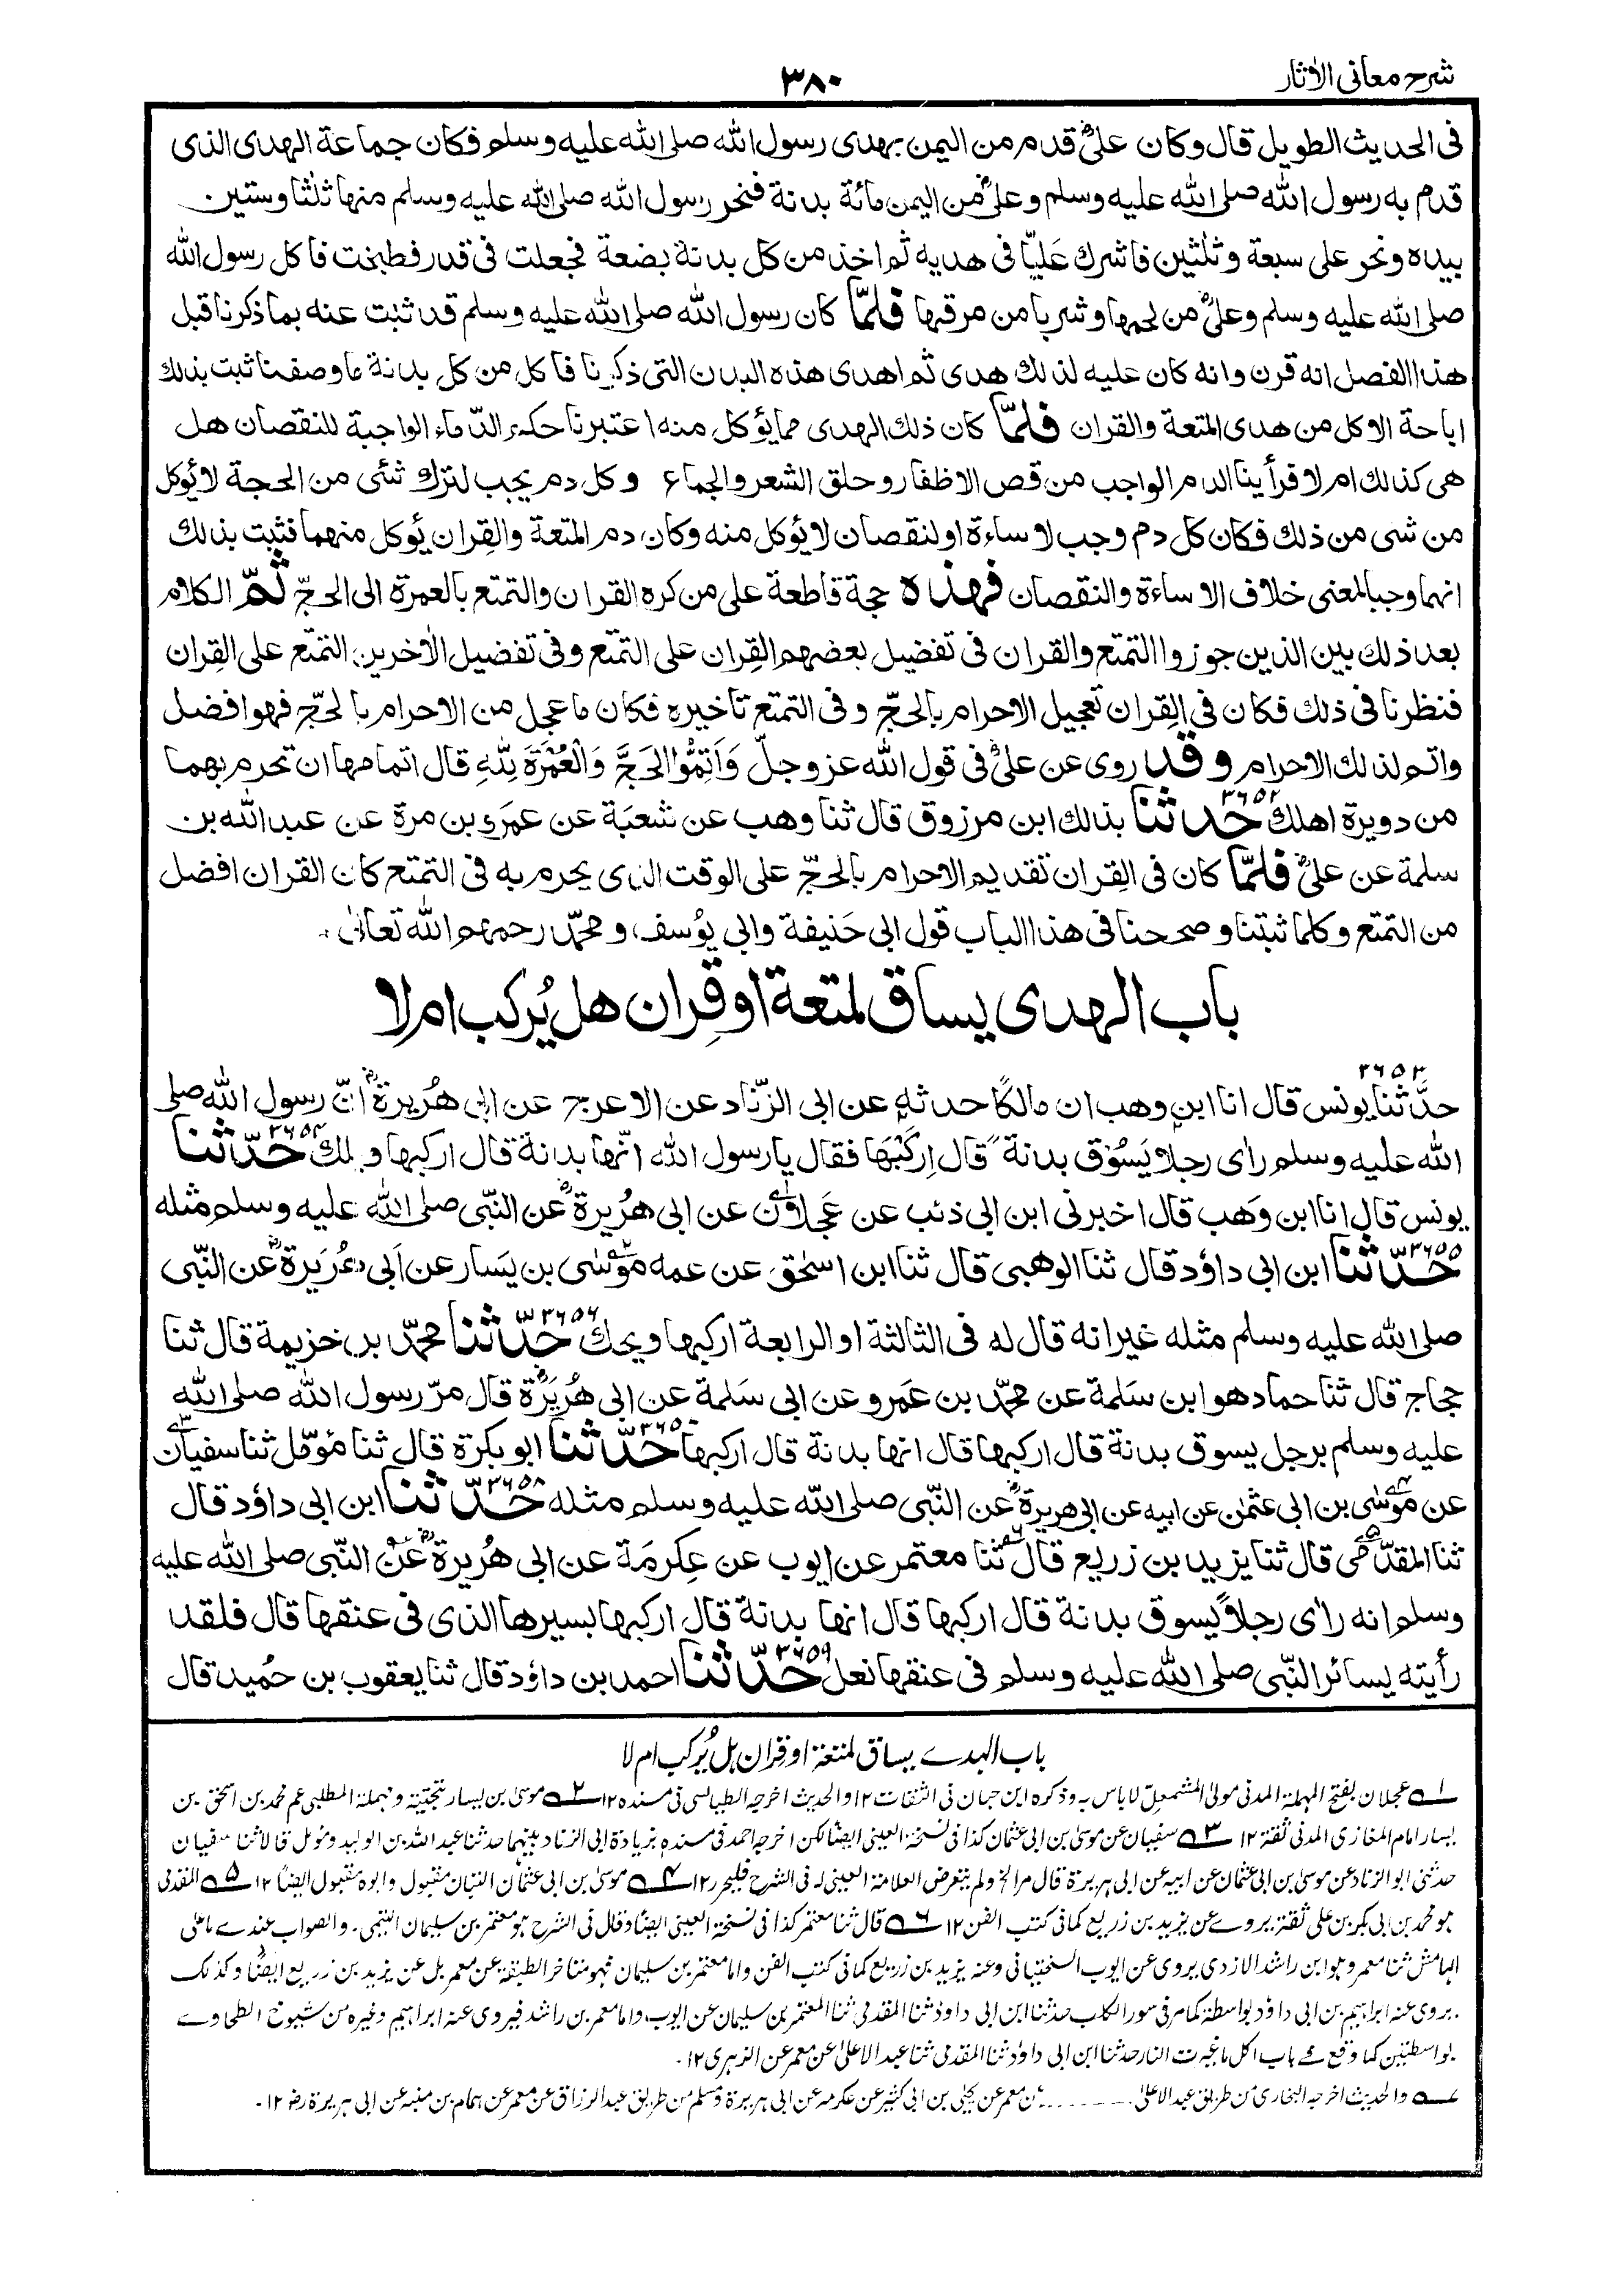 شرح معانى الاٰثار
٣٨٠
فى الحديث الطويل قال وكان علىؓ قدم من اليمن بهدى رسول الله صلى الله عليه وسلم فكان جماعة الهدى الذى
قدم به رسول الله صلى الله عليه وسلم وعلىؓ من اليمن مائة بدنة فنحر رسول الله صلى الله عليه وسلم منها ثلٰثا وستين
بيده ونحر على سبعة وثلٰثين فاشرك عَليّا فى هديه ثم اخذ من كل بدنة بضعة فجعلت فى قدر فطبخت فاكل رسول الله
صلى الله عليه وسلم وعلىؓ من لحمها وشربا من مرقها فلمّا كان رسول الله صلى الله عليه وسلم قد ثبت عنه بما ذكرنا قبل
هذا الفصل انه قرن وانه كان عليه لذلك هدى ثم اهدى هذه البدن التى ذكرنا فاكل من كل بدنة ما وصفنا ثبت بذلك
اباحة الاكل من هدى المتعة والقران فلمّا كان ذلك الهدى مما يؤكل منه اعتبرنا حكم الدّماء الواجبة للنقصان هل
هى كذلك ام لا فرأينا الدم الواجب من قص الاظفار وحلق الشعر والجماع وكل دم يجب لترك شئى من الحجة لا يُؤكل
من شى من ذلك فكان كل دم وجب لاساءة او لنقصان لا يؤكل منه وكان دم المتعة والقِران يُؤكل منهما فثبت بذلك
انهما وجبا لمعنى خلاف الاساءة والنقصان فهذه حجة قاطعة على من كره القران والتمتع بالعمرة الى الحجّ ثمّ الكلام
بعد ذلك بين الذين جوزوا التمتع والقران فى تفضيل بعضهم القِران على التمتّع وفى تفضيل الاٰخرين التمتّع على القِران
فنظرنا فى ذلك فكان فى القِران تعجيل الاحرام بالحجّ وفى التمتع تاخيره فكان ما عجل من الاحرام بالحجّ فهو افضل
واتم لذلك الاحرام وقد روى عن علىؓ فى قول الله عزوجلّ وَاَتِمُّوا الحَجَّ وَالْعُمْرَةَ لِلّٰهِ قال اتمامها ان تحرم بهما
من دويرة اهلك ٣٦٥٢ حدثنا بذلك ابن مرزوق قال ثنا وهب عن شعبَة عن عمَرو بن مرة عن عبدالله بن
سلمة عن علىؓ فلمّا كان فى القِران تقديم الاحرام بالحجّ على الوقت الذى يحرم به فى التمتع كان القران افضل
من التمتع وكلما ثبتنا وصححنا فى هذا الباب قول ابى حَنيفة وابى يوُسف ومحمّد رحمهم الله تعالىٰ
باب الهدى يساق لمتعة او قِران هل يُركب ام لا
٣٦٥٣ حدّثنا يونس قال انا ابن وهب ان مالكًا حدثه عن ابى الزّناد عن الاعرج عن ابى هُريرةؓ انّ رسول الله صلى
الله عليه وسلم راٰى رجلا يَسُوْق بدنة قال اِركَبْهَا فقال يا رسول الله انّها بدنة قال اركبها ويلك ٣٦٥٤ حَدّثنا
يونس قال انا ابن وَهب قال اخبرنى ابن ابى ذئب عن عَجلان عن ابى هُريرةؓ عن النّبى صلى الله عليه وسلم مثله
٣٦٥٥ حَدّثنا ابن ابى داؤد قال ثنا الوهبى قال ثنا ابن اسحٰق عن عمه مُوسٰى بن يسَار عن اَبى هُرَيرةؓ عن النّبى
صلى الله عليه وسلم مثله غير انه قال له فى الثالثة او الرابعة اركبها ويحك ٣٦٥٦ حَدّثنا محمّد بن خزيمة قال ثنا
حجاج قال ثنا حماد هو ابن سَلمة عن محمّد بن عَمرو عن ابى سَلمة عن ابى هُرَيرةؓ قال مرّ رسول الله صلى الله
عليه وسلم برجل يسوق بدنة قال اركبها قال انها بدنة قال اركبها حَدّثنا ابو بكرة قال ثنا مؤمّل ثنا سفيان
عن مُوسٰى بن ابى عثمٰن عن ابيه عن ابى هريرةؓ عن النّبى صلى الله عليه وسلم مثله ٣٦٥٨ حَدّثنا ابن ابى داؤد قال
ثنا المقدّمى قال ثنا يزيد بن زريع قال ثنا معتمر عن ايوب عن عِكرمَة عن ابى هُريرةؓ عَنْ النّبى صلى الله عليه
وسلم انه راٰى رجلا يسوق بدنة قال اركبها قال انها بدنة قال اركبها بسيرها الذى فى عنقها قال فلقد
رأيته يسائر النّبى صلى الله عليه وسلم فى عنقها نعل ٣٦٥٩ حَدّثنا احمد بن داؤد قال ثنا يعقوب بن حُميد قال
باب الهدے يساق لمتعة او قِران ہل يُركب ام لا
١ عجلان بفتح المهملة المدنى مولى المشمعل لا باس به وذكره ابن حبان فى الثقات ١٢ والحديث اخرجه الطيالسى فى مسنده ١٢ ٢ موسىٰ بن يسار بتحتية ومهملة المطلبى عم محمد بن اسحٰق بن
يسار امام المغازى المدنى ثقة ١٢ ٣ سفيان عن موسىٰ بن ابى عثمان كذا فى نسخة العينى ايضًا لكن اخرجه احمد فى مسنده بزيادة ابى الزناد بينهما حدثنا عبدالله بن الوليد ومؤمل قالا ثنا سفيان
حدثنى ابو الزناد عن موسىٰ بن ابى عثمان عن ابيه عن ابى ہريرة قال مر الخ ولم يتعرض العلامة العينى له فى الشرح فليحرر ١٢ ٤ موسىٰ بن ابى عثمان التبان مقبول وابوه مقبول ايضًا ١٢ ٥ المقدمى
ہو محمد بن ابى بكر بن على ثقة يروے عن يزيد بن زريع كما فى كتب الفن ١٢ ٦ قال ثنا معتمر كذا فى نسخة العينى ايضًا وقال فى الشرح ہو معتمر بن سليمان التيمى۔ والصواب عندے ما على
الهامش ثنا معمر وہو ابن راشد الازدى يروى عن ايوب السختيانى وعنه يزيد بن زريع كما فى كتب الفن واما معتمر بن سليمان فهو متاخر الطبقة عن معمر بل عن يزيد بن زريع ايضًا وكذلك
يروى عنه ابراهيم بن ابى داؤد بواسطة كما مر فى سور الكلب حدثنا ابن ابى داود ثنا المقدمى ثنا المعتمر بن سليمان عن ايوب، واما معمر بن راشد فيروى عنه ابراہيم وغيره من شيوخ الطحاوے
بواسطتين كما وقع فے باب اكل ما غيرت النار حدثنا ابن ابى داؤد ثنا المقدمى ثنا عبد الاعلىٰ عن معمر عن الزہرى ١٢۔
٧ والحديث اخرجه البخارى من طريق عبد الاعلىٰ ........ عن معمر عن يحيىٰ بن ابى كثير عن عكرمه عن ابى ہريرة ومسلم من طريق عبد الرزاق عن معمر عن ہمام بن منبه عن ابى ہريرة رض ١٢۔